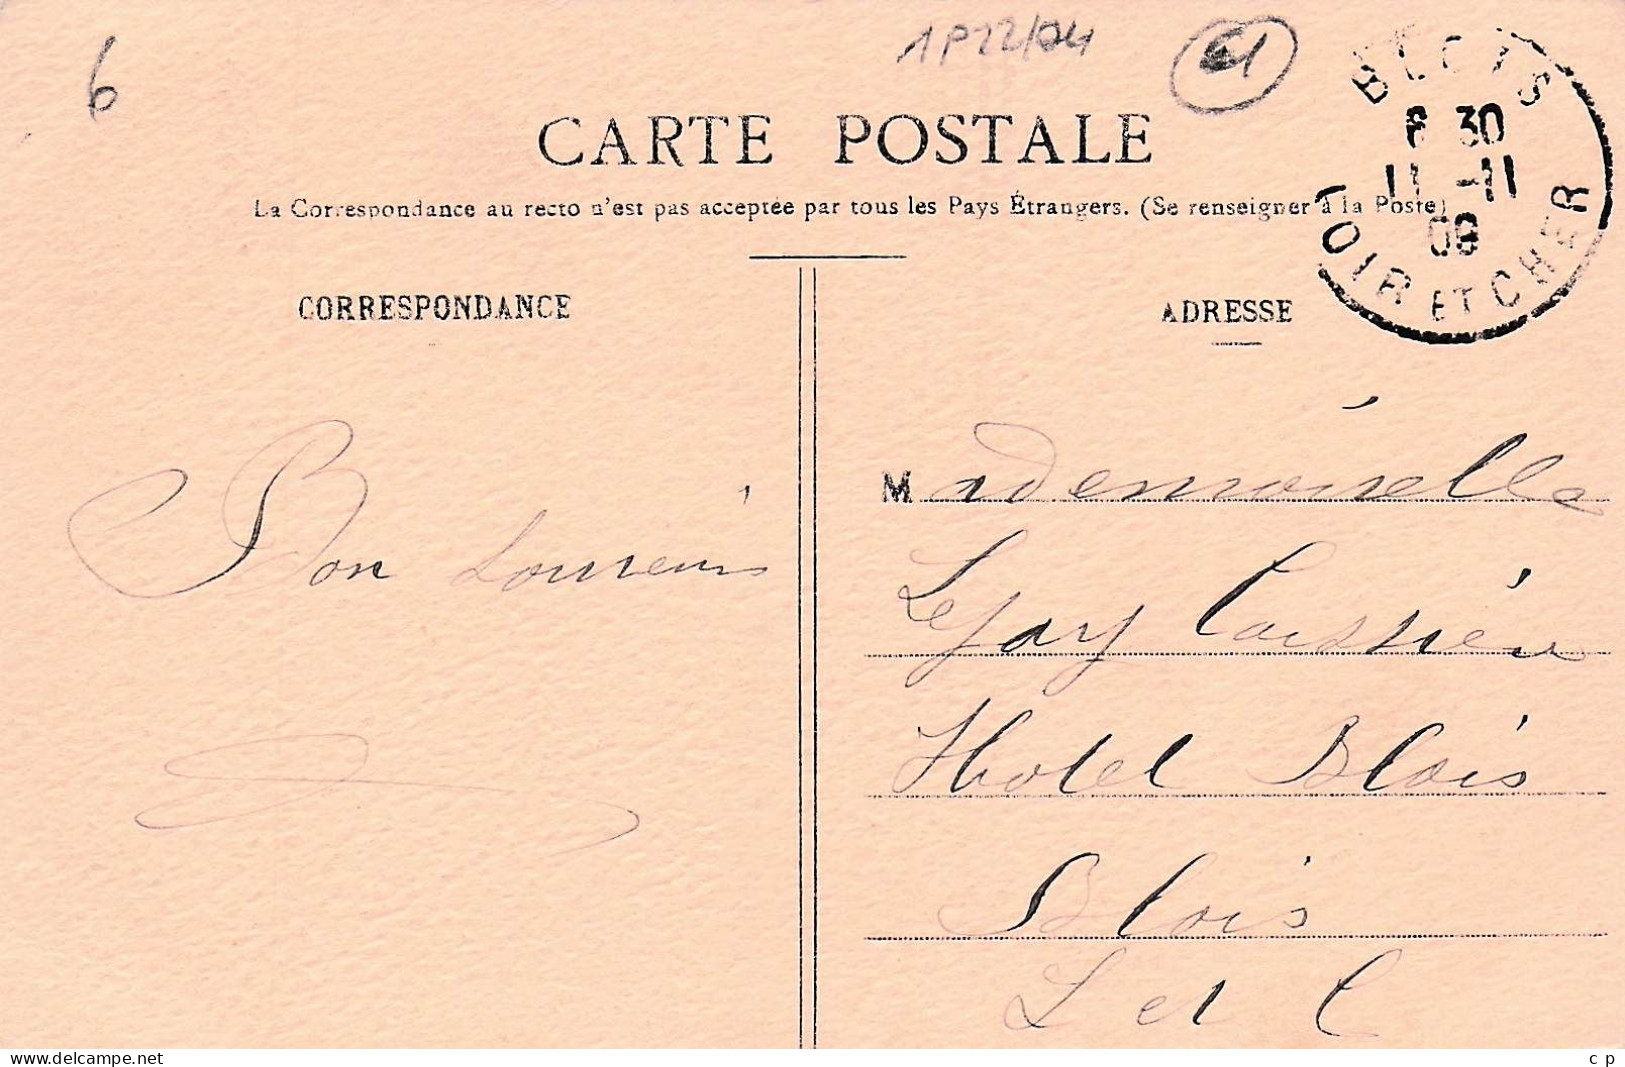 6
1P22/04
61
CARTE POSTALE
La Correspondance au recto n'est pas acceptée par tous les Pays Étrangers. (Se renseigner à la Poste)
BLOIS
6 30
11 -11
09
LOIR ET CHER
CORRESPONDANCE
ADRESSE
Bon Souvenir
Mademoiselle
Legay Caissière
Hotel Blois
Blois
L et C
www.delcampe.net
c p